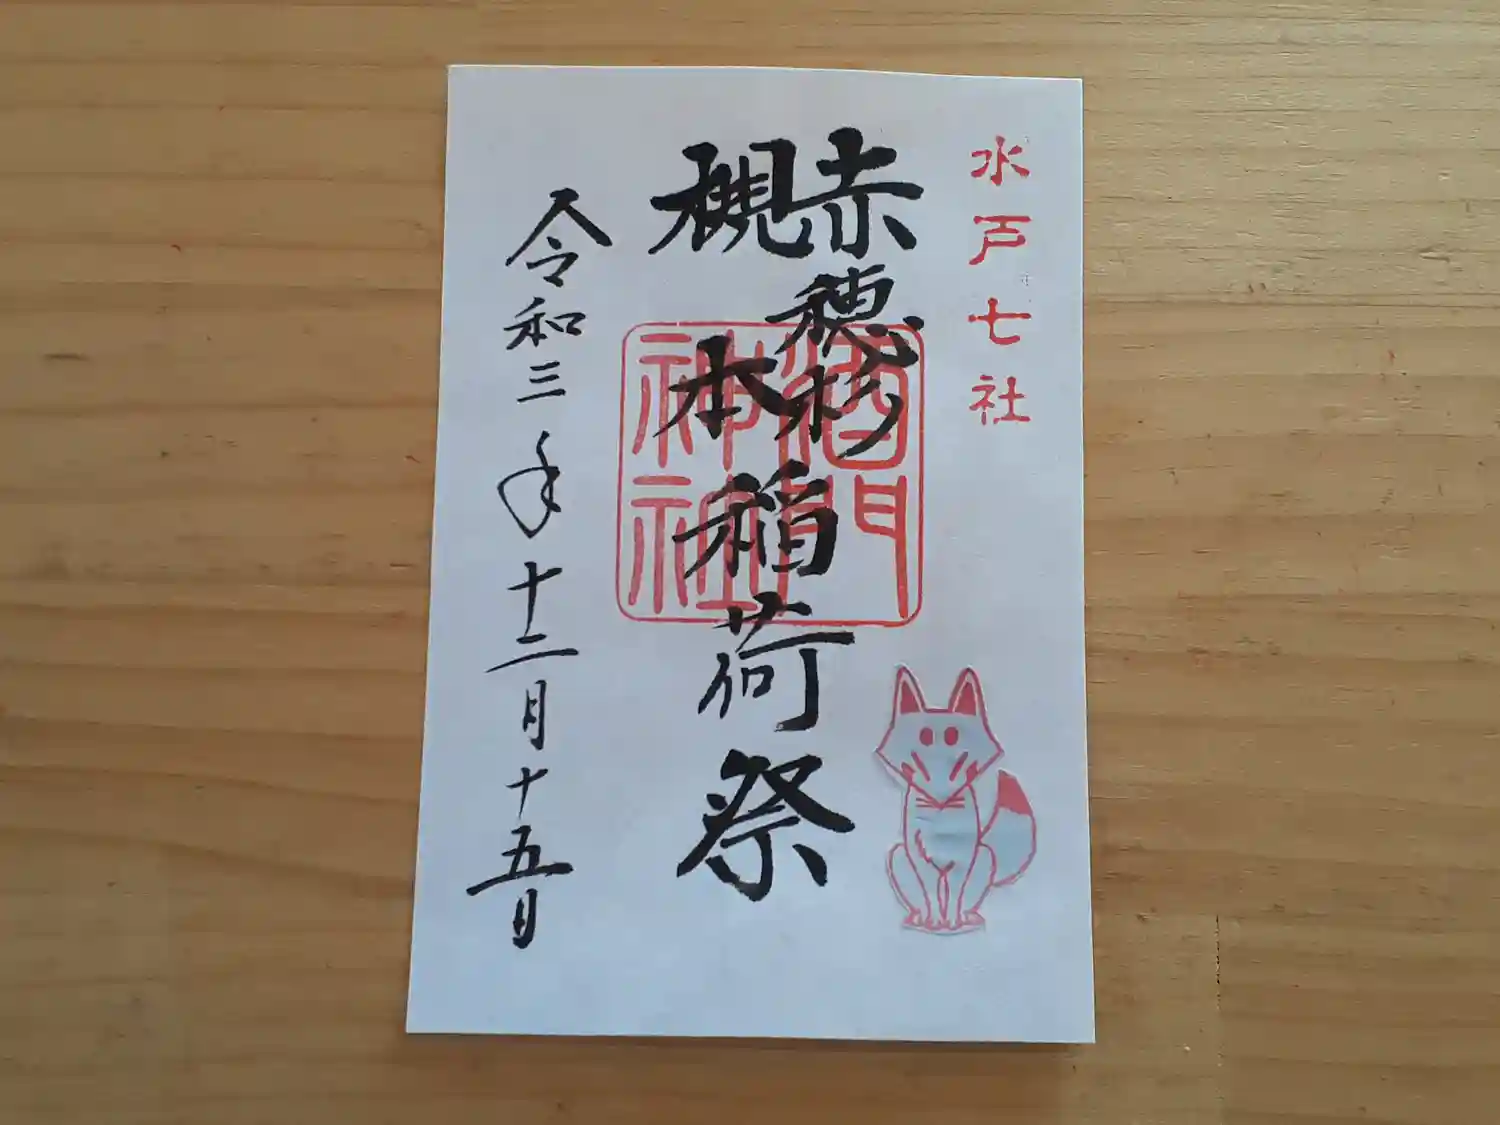 水戸七社
赤穂杉
槻本
稲荷祭
酒門
神社
令和三年十二月十五日